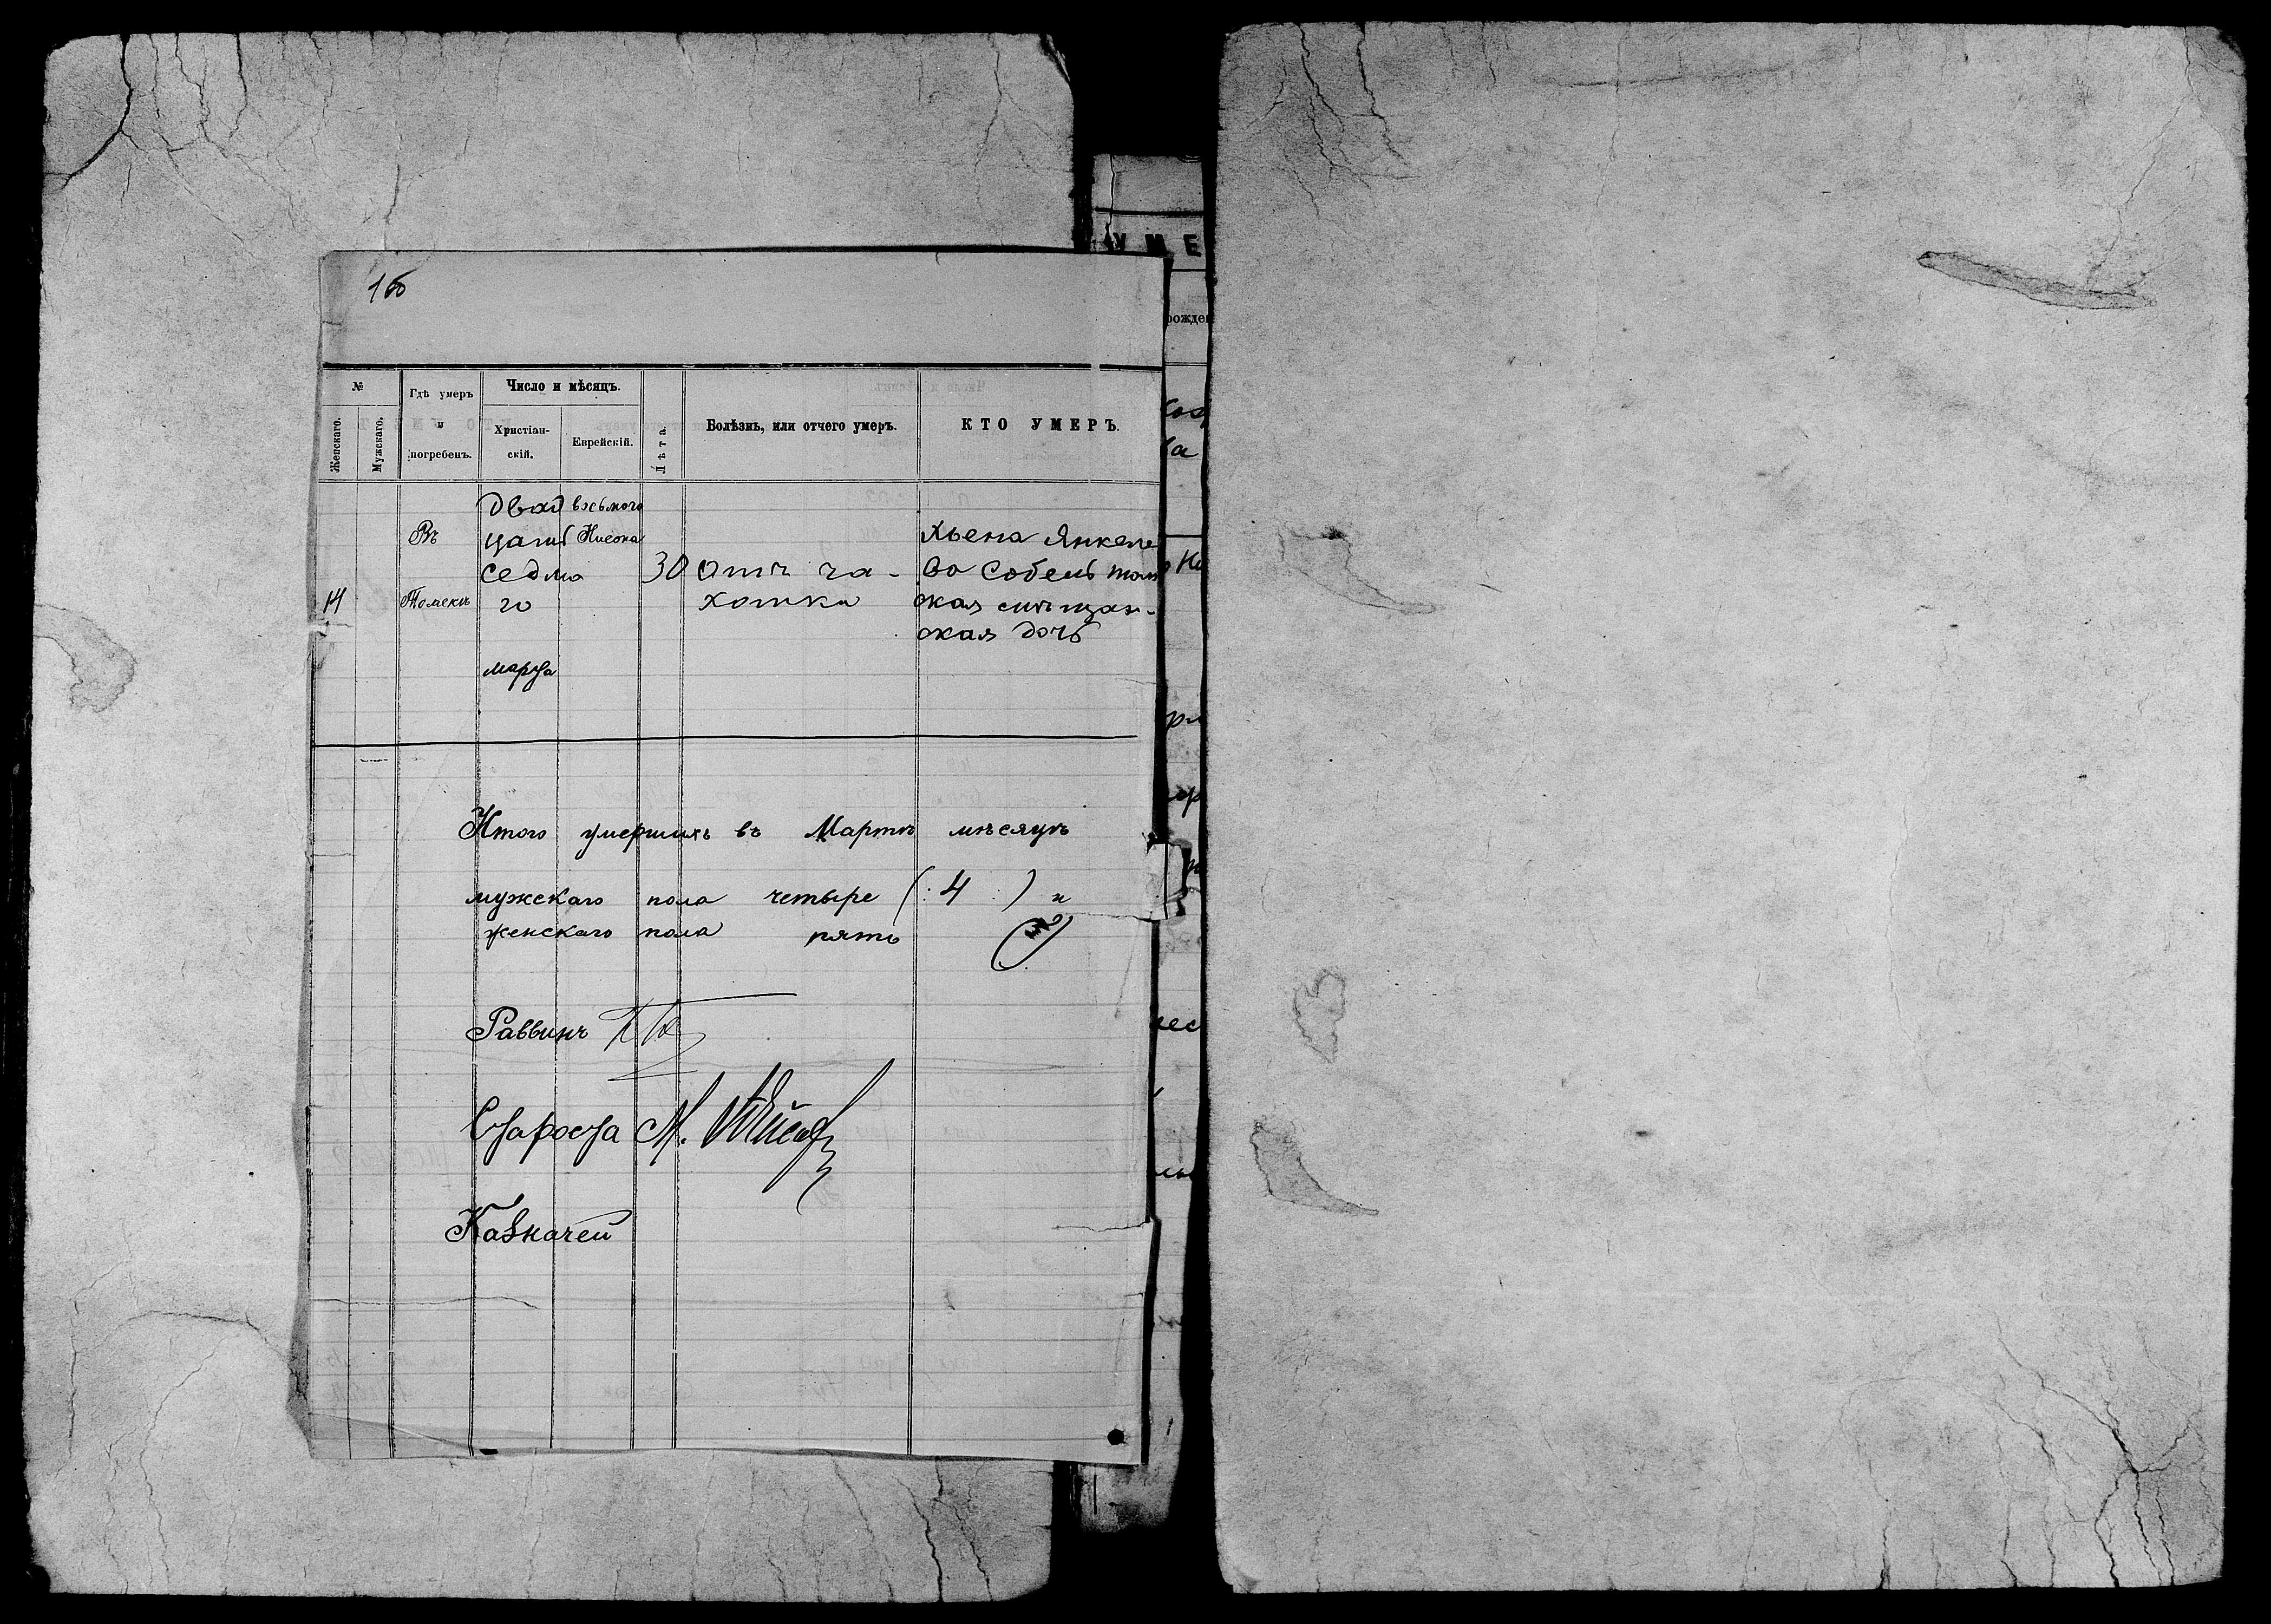 16
№
Женскаго.
Мужскаго.
Гдѣ умеръ
и
погребенъ.
Число и мѣсяцъ.
Христіан-
скій.
Еврейскій.
Лѣта.
Болѣзнь, или отчего умеръ.
КТО УМЕРЪ.
УМЕ
рожден
14
Въ
Томскѣ
двад
цать
седма
го
марта
восьмого
Нисона
30
отъ ча-
хотки
Хьена Янкеле
во Собель том
ская мѣщан-
ская дочь
Итого умершихъ въ Мартѣ мѣсяцѣ
мужскаго пола четыре (: 4 :) и
женскаго пола пять
Раввинъ
Староста М.
Казначей